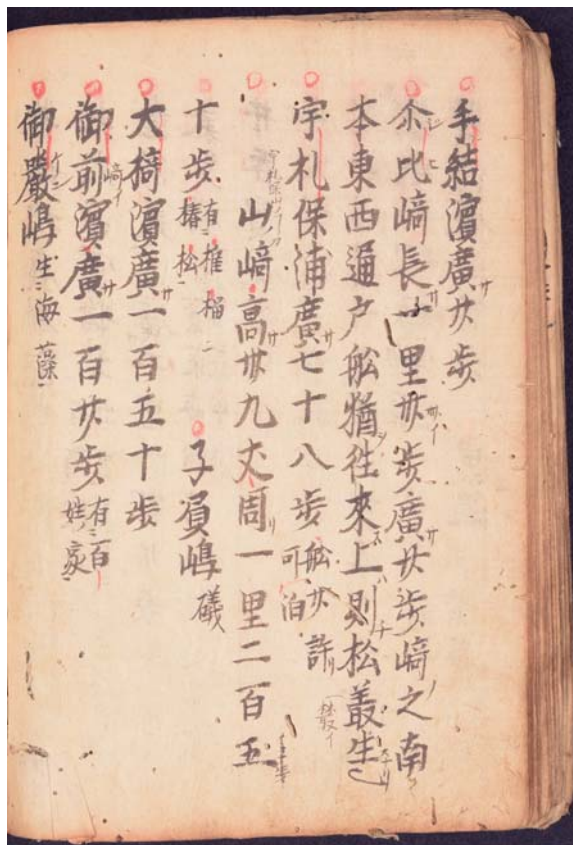 手結濱廣廿歩
尒比﨑長一里卅歩廣廿歩﨑之南
本東西通戸舩猶徃來上則松叢生
宇札保浦廣七十八歩舩廿許可泊
山﨑高卅九丈周一里二百五
十歩有椎楠椿松 子負嶋礒
大椅濱廣一百五十歩
御前濱廣一百廿歩有百姓家
御嚴嶋生海藻